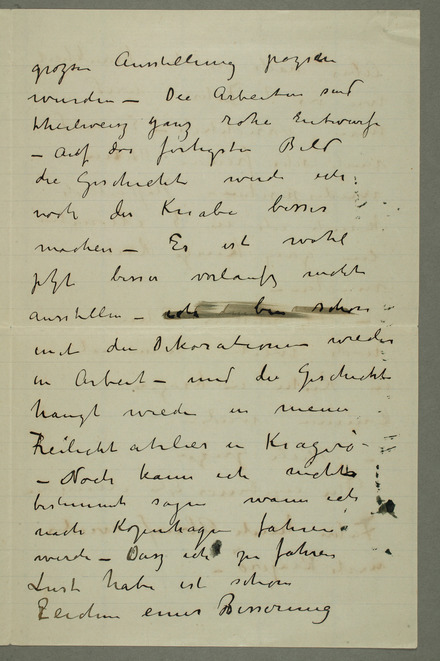 grozsen Ausstellung pazsen
wurden – Die Arbeiten sind
theilweiz ganz rohe Entwürfe
– Auf das fertigste Bild
die Geschichte werde ich
noch der Knabe besser
machen – Es ist wohl
jetzt besser vorlaufig nicht
ausstellen – ich bin schon
mit den Dekorationen wieder
in Arbeit – und die Geschichte
hangt wieder in meinem
Freilicht atelier in Kragerö –
– Noch kann ich nicht
bestimmt sagen wann ich
nach Kopenhagen fahren
werde – Dasz ich zu fahren
Lust habe ist schon
Zeichen einer Besserung